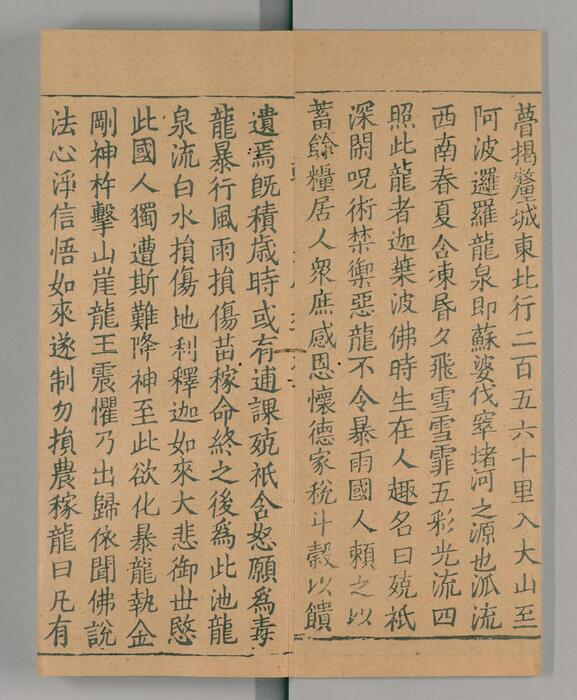 瞢揭釐城東北行二百五六十里入大山至
阿波邏羅龍泉即蘇婆伐窣堵河之源也泒流
西南春夏含凍昏夕飛雪雪霏五彩光流四
照此龍者迦葉波佛時生在人趣名曰殑祇
深閑呪術禁禦惡龍不令暴雨國人賴之以
蓄餘糧居人衆庶感恩懷德家稅斗穀以饋
遺焉旣積歲時或有逋課殑祇含怒願爲毒
龍暴行風雨損傷苗稼命終之後爲此池龍
泉流白水損傷地利釋迦如來大悲御世愍
此國人獨遭斯難降神至此欲化暴龍執金
剛神杵擊山崖龍王震懼乃出歸依聞佛說
法心淨信悟如來遂制勿損農稼龍曰凡有